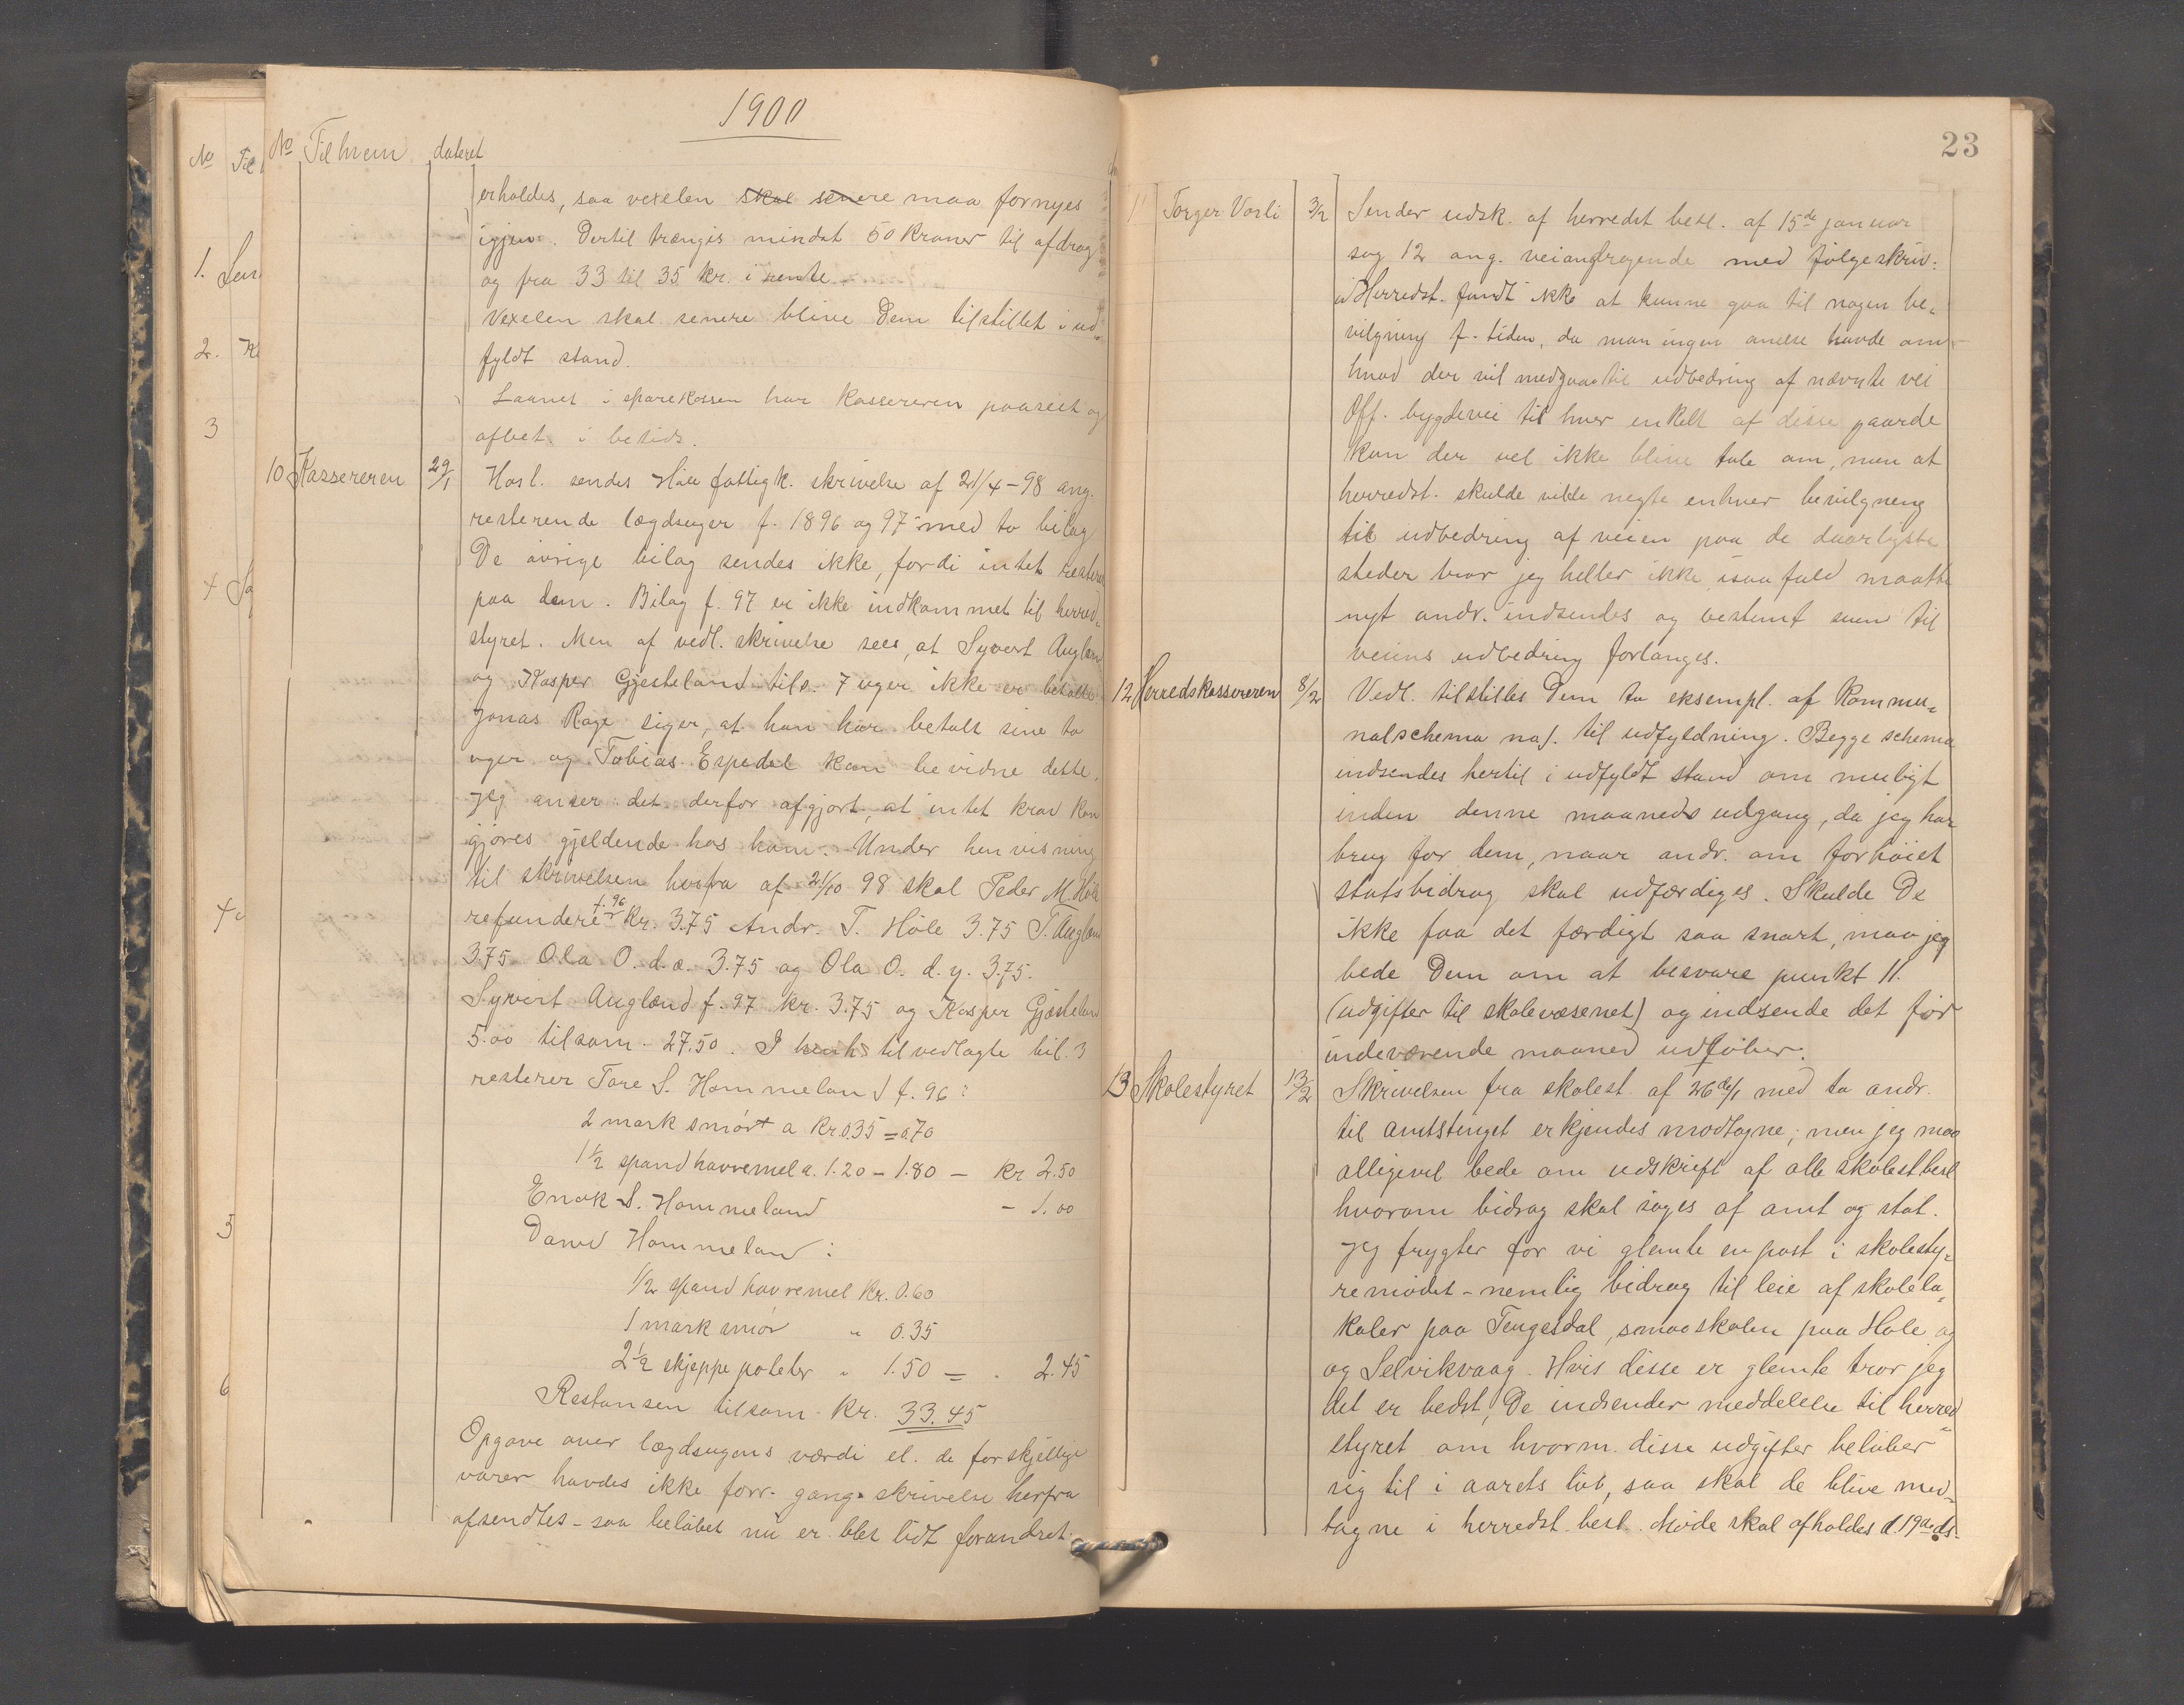 1900
No Til hvem dateret
erholdes, saa vexelen skal senere maa fornyes
igjen. Dertil trængis mindst 50 kroner til afdrag
og fra 33 til 35 kr. i rente.
Vexelen skal senere blive Dem tilstillet i ud-
fyldt stand.
Laanet i sparekassen har kassereren paaseet og
afbet. i betids.
10 Kassereren 29/1 Hosl. sendes Høle fattigk. skrivelse af 21/4-98 ang.
resterende lægdsuger f. 1896 og 97 med to bilag
De øvrige bilag sendes ikke, fordi intet resterer
paa dem. Bilag f. 97 er ikke indkommet til herred-
styret. Men af vedl. skrivelse sees, at Syvert Auglænd
og Kasper Gjesteland tils. 7 uger ikke er betalte.
Jonas Rage siger, at han har betalt sine to
uger og Tobias Espedal kan bevidne dette.
Jeg anser det derfor afgjort, at intet krav kan
gjøres gjeldende hos ham. Under henvisning
til skrivelsen herfra af 21/10 98 skal Peder M. Høle
refundere f. 96 Kr. 3.75 Andr. T. Høle 3.75 T. Auglænd
3.75 Ola O. d. æ. 3.75 og Ola O. d. y. 3.75.
Syvert Auglænd f. 97 kr. 3.75 og Kasper Gjesteland
5.00 tilsam. 27.50. I henh. til vedlagte bil. 3
resterer Tore S. Hommeland f. 96:
2 mark smør a Kr 0.35 = 0.70
1 1/2 spand havremel a. 1.20 - 1.80 - Kr 2.50
Enok S. Hommeland - 1.00
Daniel Hommeland:
1/2 spand havremel Kr. 0.60
1 mark smør " 0.35
2 1/2 skjeppe poteter " 1.50 = " 2.45
Restansen tilsam. Kr. 33.45
Opgave over lægdsugens værdi el. de forskjellige
varer havdes ikke forr. gang skrivelse herfra
afsendtes - saa beløbet nu er blet lidt forandret.
23
11 Torger Vasli 3/2 Sender udsk. af herredst besl. af 15de januar
sag 12 ang. veiandragende med følgeskriv:
Herredst. fandt ikke at kunne gaa til nogen be-
vilgning f. tiden, da man ingen anelse havde om
hvad der vil medgaa til udbedring af nævnte vei
Off. bygdevei til hver enkelt af disse gaarde
kan der vel ikke blive tale om, men at
herredst. skulde ville negte enhver bevilgning
til udbedring af veien paa de daarligste
steder tror jeg heller ikke, isaafald maatte
nyt andr. indsendes og bestemt sum til
veiens udbedring forlanges.
12 Herredskassereren 8/2 Vedl. tilstilles Dem to eksempl. af Kommu-
nalschema no 1. til udfyldning. Begge schema
indsendes hertil i udfyldt stand om muligt
inden denne maaneds udgang, da jeg har
brug for dem, naar andr. om forhøiet
statsbidrag skal udfærdiges. Skulde De
ikke faa det færdigt saa snart, maa jeg
bede Dem om at besvare punkt 11.
(udgifter til skolevæsenet) og indsende det før
indeværende maaned udløber.
13 Skolestyret 13/2 Skrivelsen fra skolest. af 26de/1 med to andr.
til amtstinget erkjendes modtagne; men jeg maa
alligevel bede om udskrift af alle skolest besl
hvorom bidrag skal søges af amt og stat.
Jeg frygter for vi glemte en post i skolesty-
remødet - nemlig bidrag til leie af skolelo-
kaler paa Tengesdal, smaaskolen paa Høle og
og Selvikvaag. Hvis disse er glemte tror jeg
det er bedst, De indsender meddelelse til herred
styret om hvorm. disse udgifter beløber
sig til i aarets løb, saa skal de blive med-
tagne i herredst. besl. Møde skal afholdes d. 19de ds.